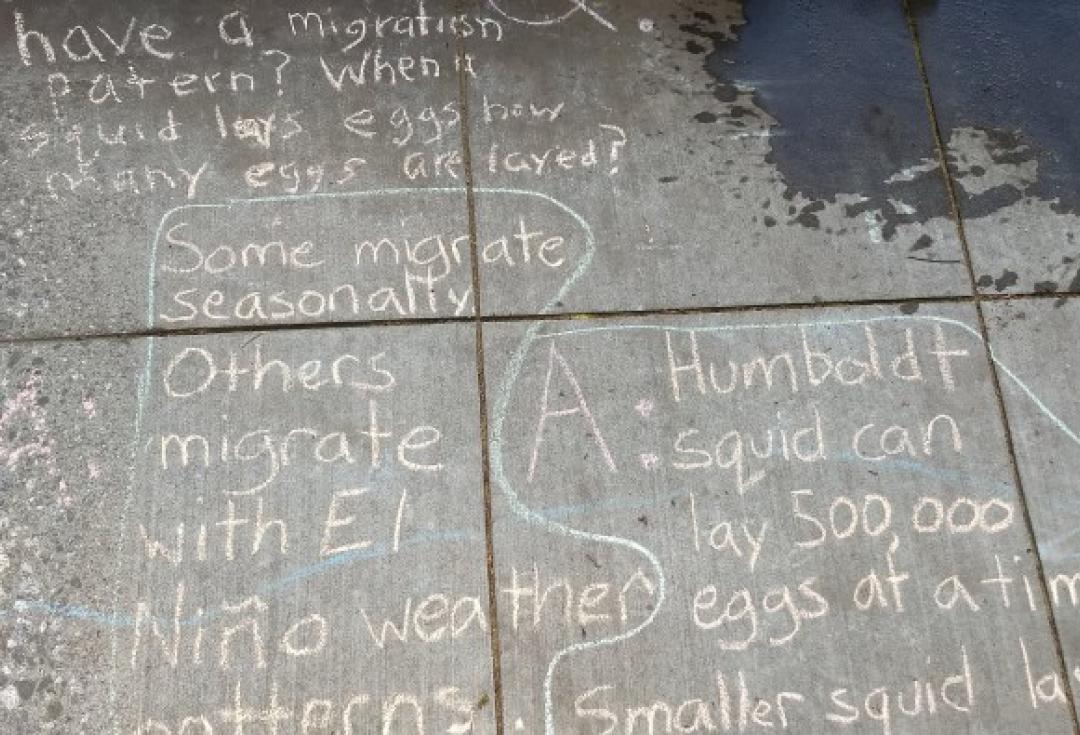 have a migration
patern? When a
squid lays eggs how
many eggs are layed?
Q.
Some migrate
seasonally.
Others
migrate
with El
Niño weather
patterns.
A: Humboldt
squid can
lay 500,000
eggs at a tim
Smaller squid la